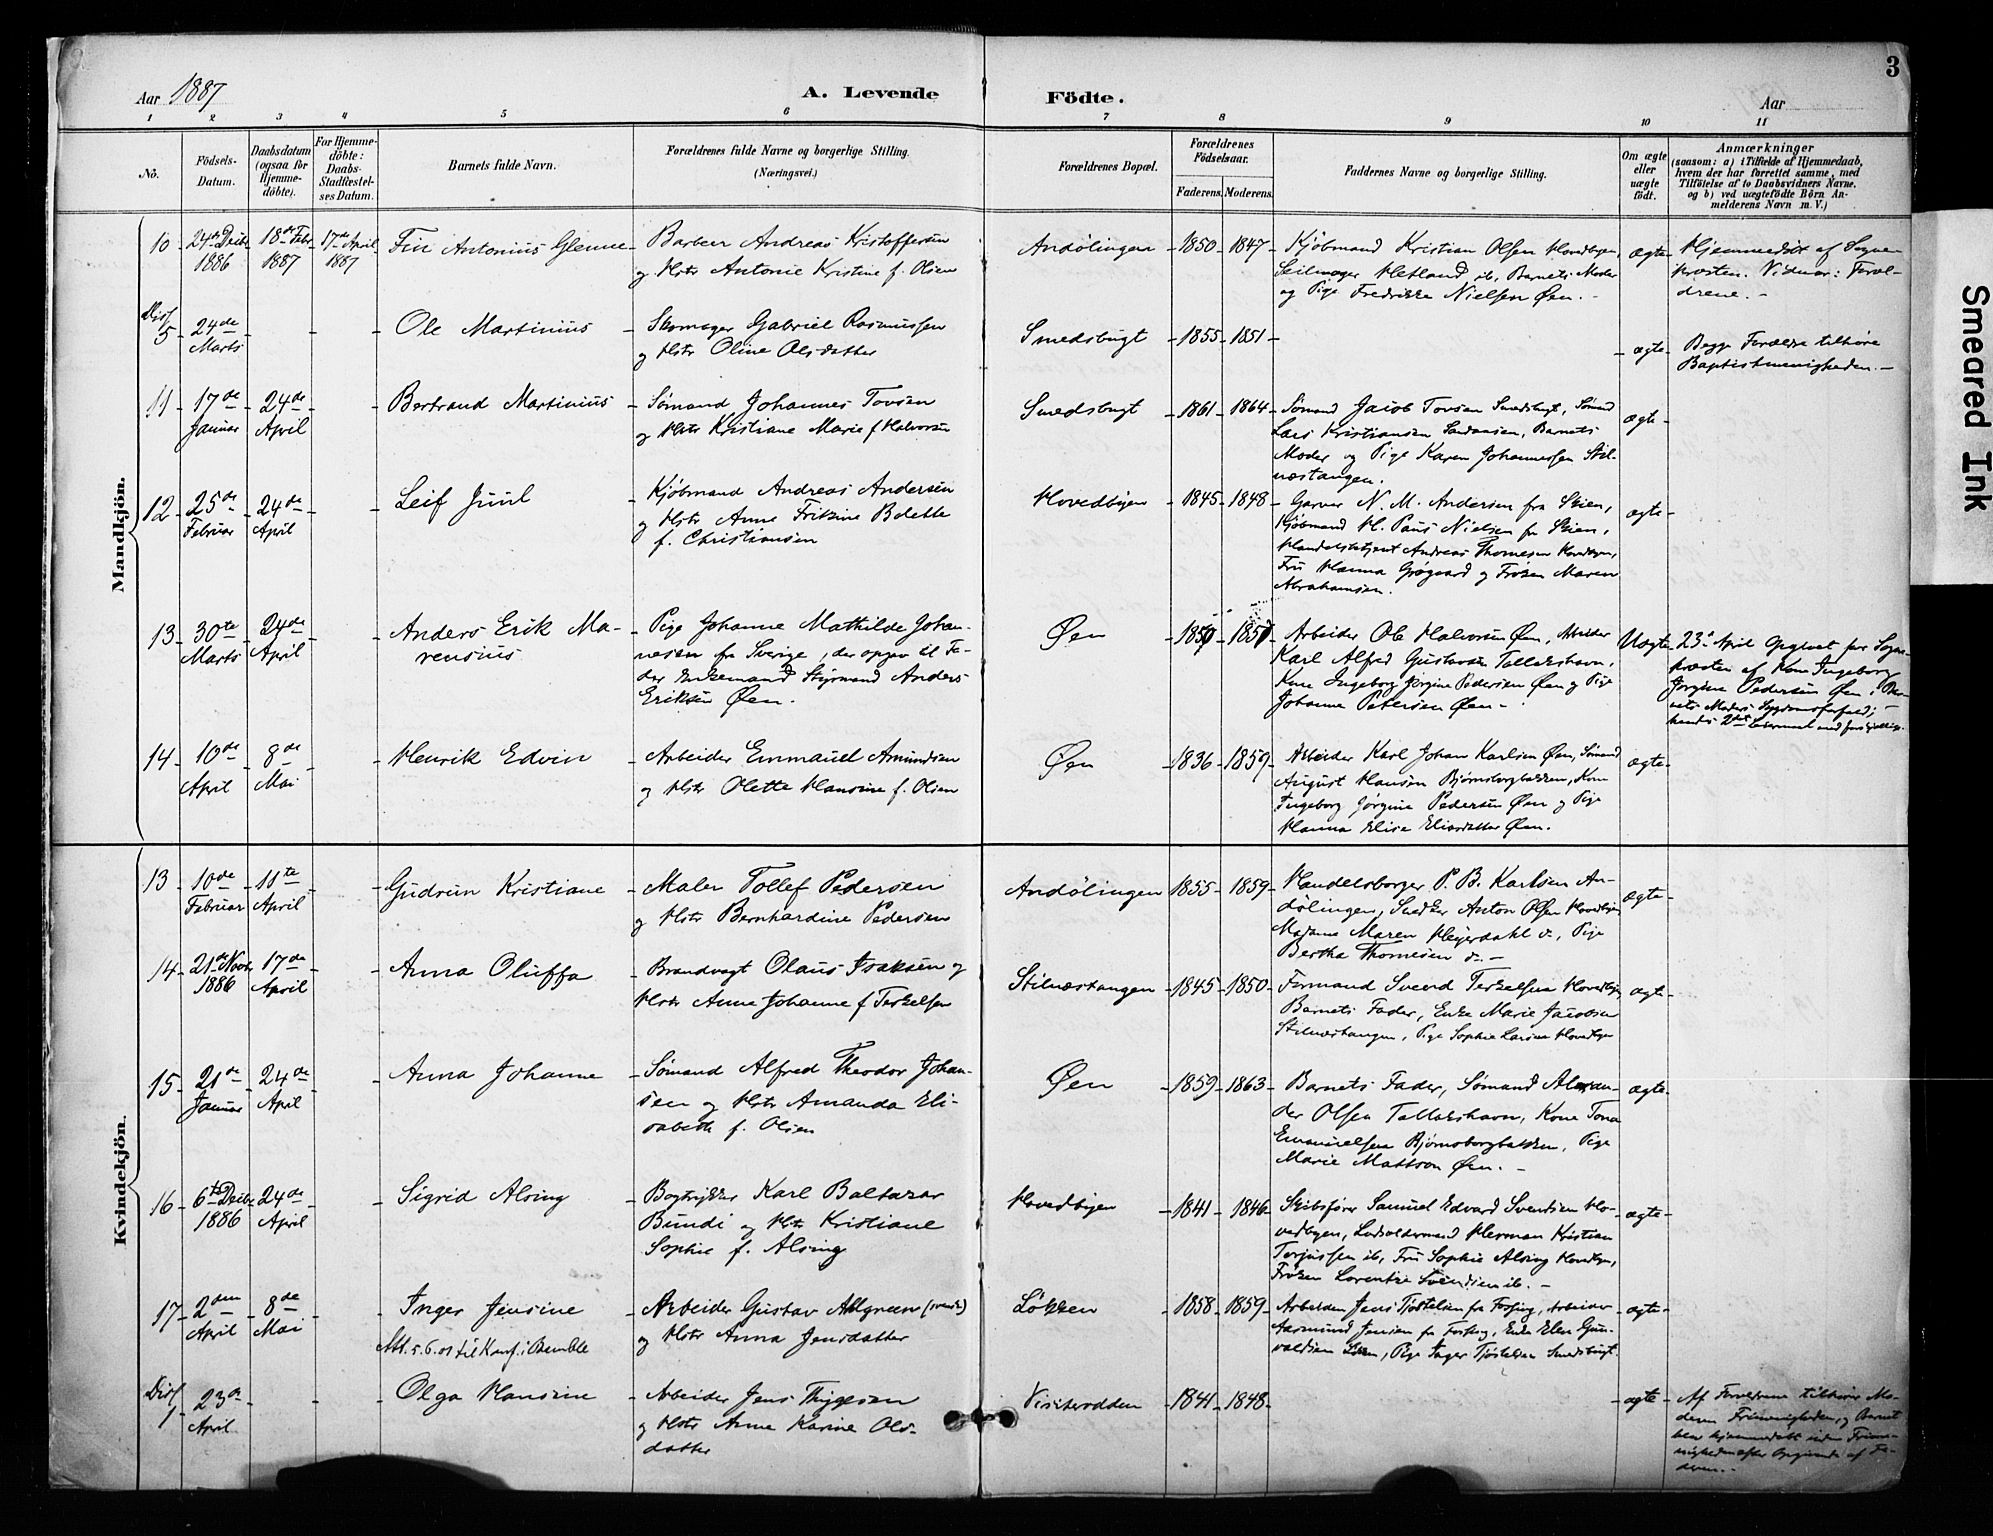 3
Aar 1887
A. Levende Födte.
Aar
1 2 3 4 5 6 7 8 9 10 11
No.
Födsels-Datum.
Daabsdatum (ogsaa for Hjemme-döbte).
For Hjemme-döbte: Daabs-Stadfæstelses Datum.
Barnets fulde Navn.
Forældrenes fulde Navne og borgerlige Stilling.
(Næringsvei.)
Forældrenes Bopæl.
Forældrenes Födselsaar.
Faderens. Moderens.
Faddernes Navne og borgerlige Stilling.
Om ægte eller uægte födt.
Anmærkninger
(saasom: a) i Tilfælde af Hjemmedaab, hvem der har forrettet samme, med Tilföielse af to Daabsvidners Navne, og b) ved uægtefödte Börn Anmelderens Navn m. V.)
Mandkjön.
10 24de Decbr 1886 18de Febr 1887 17de April 1887
Fin Antonius Glenne
Barber Andreas Kristoffersen
og Hstr Antonie Kristine f. Olsen
Andölingen 1850 1847
Kjøbmand Kristian Olsen Hovedbyen,
Seilmager Hetland ib, Barnets Moder
og Pige Fredrikke Nielsen Øen.
ægte
Hjemmedøbt af Sogne-
præsten. Vidner: Foræl-
drene.
Diss 5 24de Marts
Ole Martinius
Skomager Gabriel Rasmussen
og Hstr Oline Olsdatter
Smedsbugt 1855 1851
ægte
Begge Forældre tilhøre
Baptistmenigheden.
11 17de Januar 24de April
Bertrand Martinius
Sømand Johannes Tovsen
og Hstr Kristiane Marie f. Halvorsen
Smedsbugt 1861 1864
Sømand Jacob Tovsen Smedsbugt, Sømand
Lars Kristiansen Sandaasen, Barnets
Moder og Pige Karen Johannessen Stil-
næstangen.
ægte
12 25de Februar 24de April
Leif Juul
Kjöbmand Andreas Andersen
og Hstr Anne Frikine Bolette
f. Christiansen
Hovedbyen 1845 1848
Garver N. M. Andersen fra Skien,
Kjøbmand H. Paus Nielsen fra Skien,
Handelsbetjent Andreas Thomesen Hovedbyen,
Fru Hanna Grøgaard og Frøken Maren
Abrahamsen.
ægte
13 30te Marts 24de April
Anders Erik Ma-
rensius
Pige Johanne Mathilde Johan-
nesen fra Sverige, der opgav til Fa-
der Enkemand Styrmand Anders
Eriksen Øen.
Øen
Arbeider Ole Halvorsen Øen, Arbeider
Karl Alfred Gustavsen Tallakshavn,
Kone Ingeborg Jørgine Pedersen Øen og Pige
Johanne Petersen Øen
Uægte
23de April Opgivet for Sogne-
præsten af Kone Ingeborg
Jørgine Pedersen Øen i Bar-
nets Moders Sygdomsforfald;
14 10de April 8de Mai
Henrik Edvin
Arbeider Emmanuel Amundsen
og Hstr Olette Hansine f. Olsen
Øen 1836 1859
Arbeider Karl Johan Karlsen Øen, Sømand
August Hansen Bjørnsborgbakken, Kone
Ingeborg Jørgine Pedersen Øen og Pige
Hanna Elise Eliasdatter Øen.
ægte
Kvindekjön.
13 10de Februar 11te April
Gudrun Kristiane
Maler Tollef Pedersen
og Hstr Bernhardine Pedersen
Andölingen 1855 1859
Handelsborger P. B. Karlsen An-
dölingen, Snedker Anton Olsen Hovedbyen
Madame Maren Heyerdahl do, Pige
Bertha Thomesen do
ægte
14 21de Novbr 1886 17de April
Anna Oluffa
Brandvagt Olaus Isaksen og
Hstr Anne Johanne f Terkelsen
Stilnæstangen 1845 1850
Formand Svend Terkelsen Hovedbyen
Barnets Fader, Enke Marie Jacobsen
Stilnæstangen, Pige Sophie Larsen Hovedbyen
ægte
15 21de Januar 24de April
Anna Johanne
Sømand Alfred Theodor Johan-
sen og Hstr Amanda Eli-
sabeth f. Olsen
Øen 1859 1863
Barnets Fader, Sømand Alexan-
der Olsen Tallakshavn, Kone Tona
Emanuelsen Bjørnsborgbakken, Pige
Marie Mattson Øen.
ægte
16 6te Decbr 1886 24de April
Sigrid Alsing
Bogtrykker Karl Baltazar
Bundi og Hstr Kristiane
Sophie f. Alsing
Hovedbyen 1841 1846
Skibsfører Samuel Edvard Svendsen Ho-
vedbyen, Lodsoldermand Herman Kristian
Terjussen ib, Fru Sophie Alsing Hovedbyen,
Frøken Lorentze Svendsen ib.
ægte
17 2den April 8de Mai
Inger Jensine
Att. 5.6.01 til Konf. i Bamble
Arbeider Gustav Allgreen (svensk)
og Hstr Anna Jensdatter
Løkken 1858 1859
Arbeider Jens Tjøstelsen fra , Arbeider
Aasmund Jensen fra , Enke Elen Gun-
valdsen , Pige Inger Tjøstelsen Smedsbugt
ægte
Diss 1 23de April
Olga Hansine
Arbeider Jens Thygesen
og Hstr Anne Karine Ols-
datter
Visiterodden 1841 1848
ægte
Af Forældrene tilhører Mo-
deren Frimenigheden, og Barnet
blev hjemmedøbt inden Frime-
nigheden efter Opgivende af Fa-
deren.
Smeared Ink